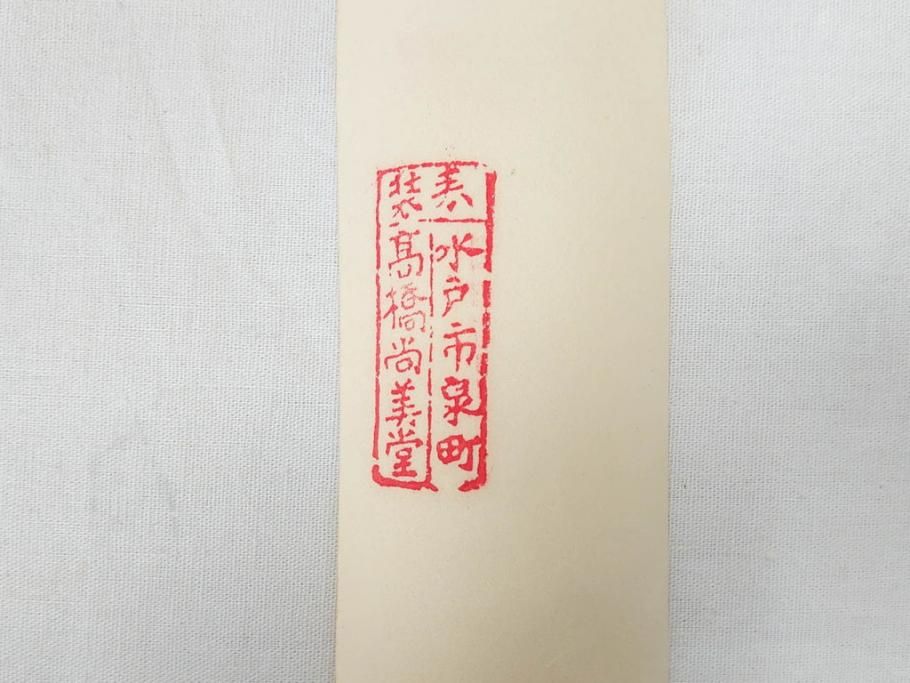 表装
水戸市泉町
高橋尚美堂